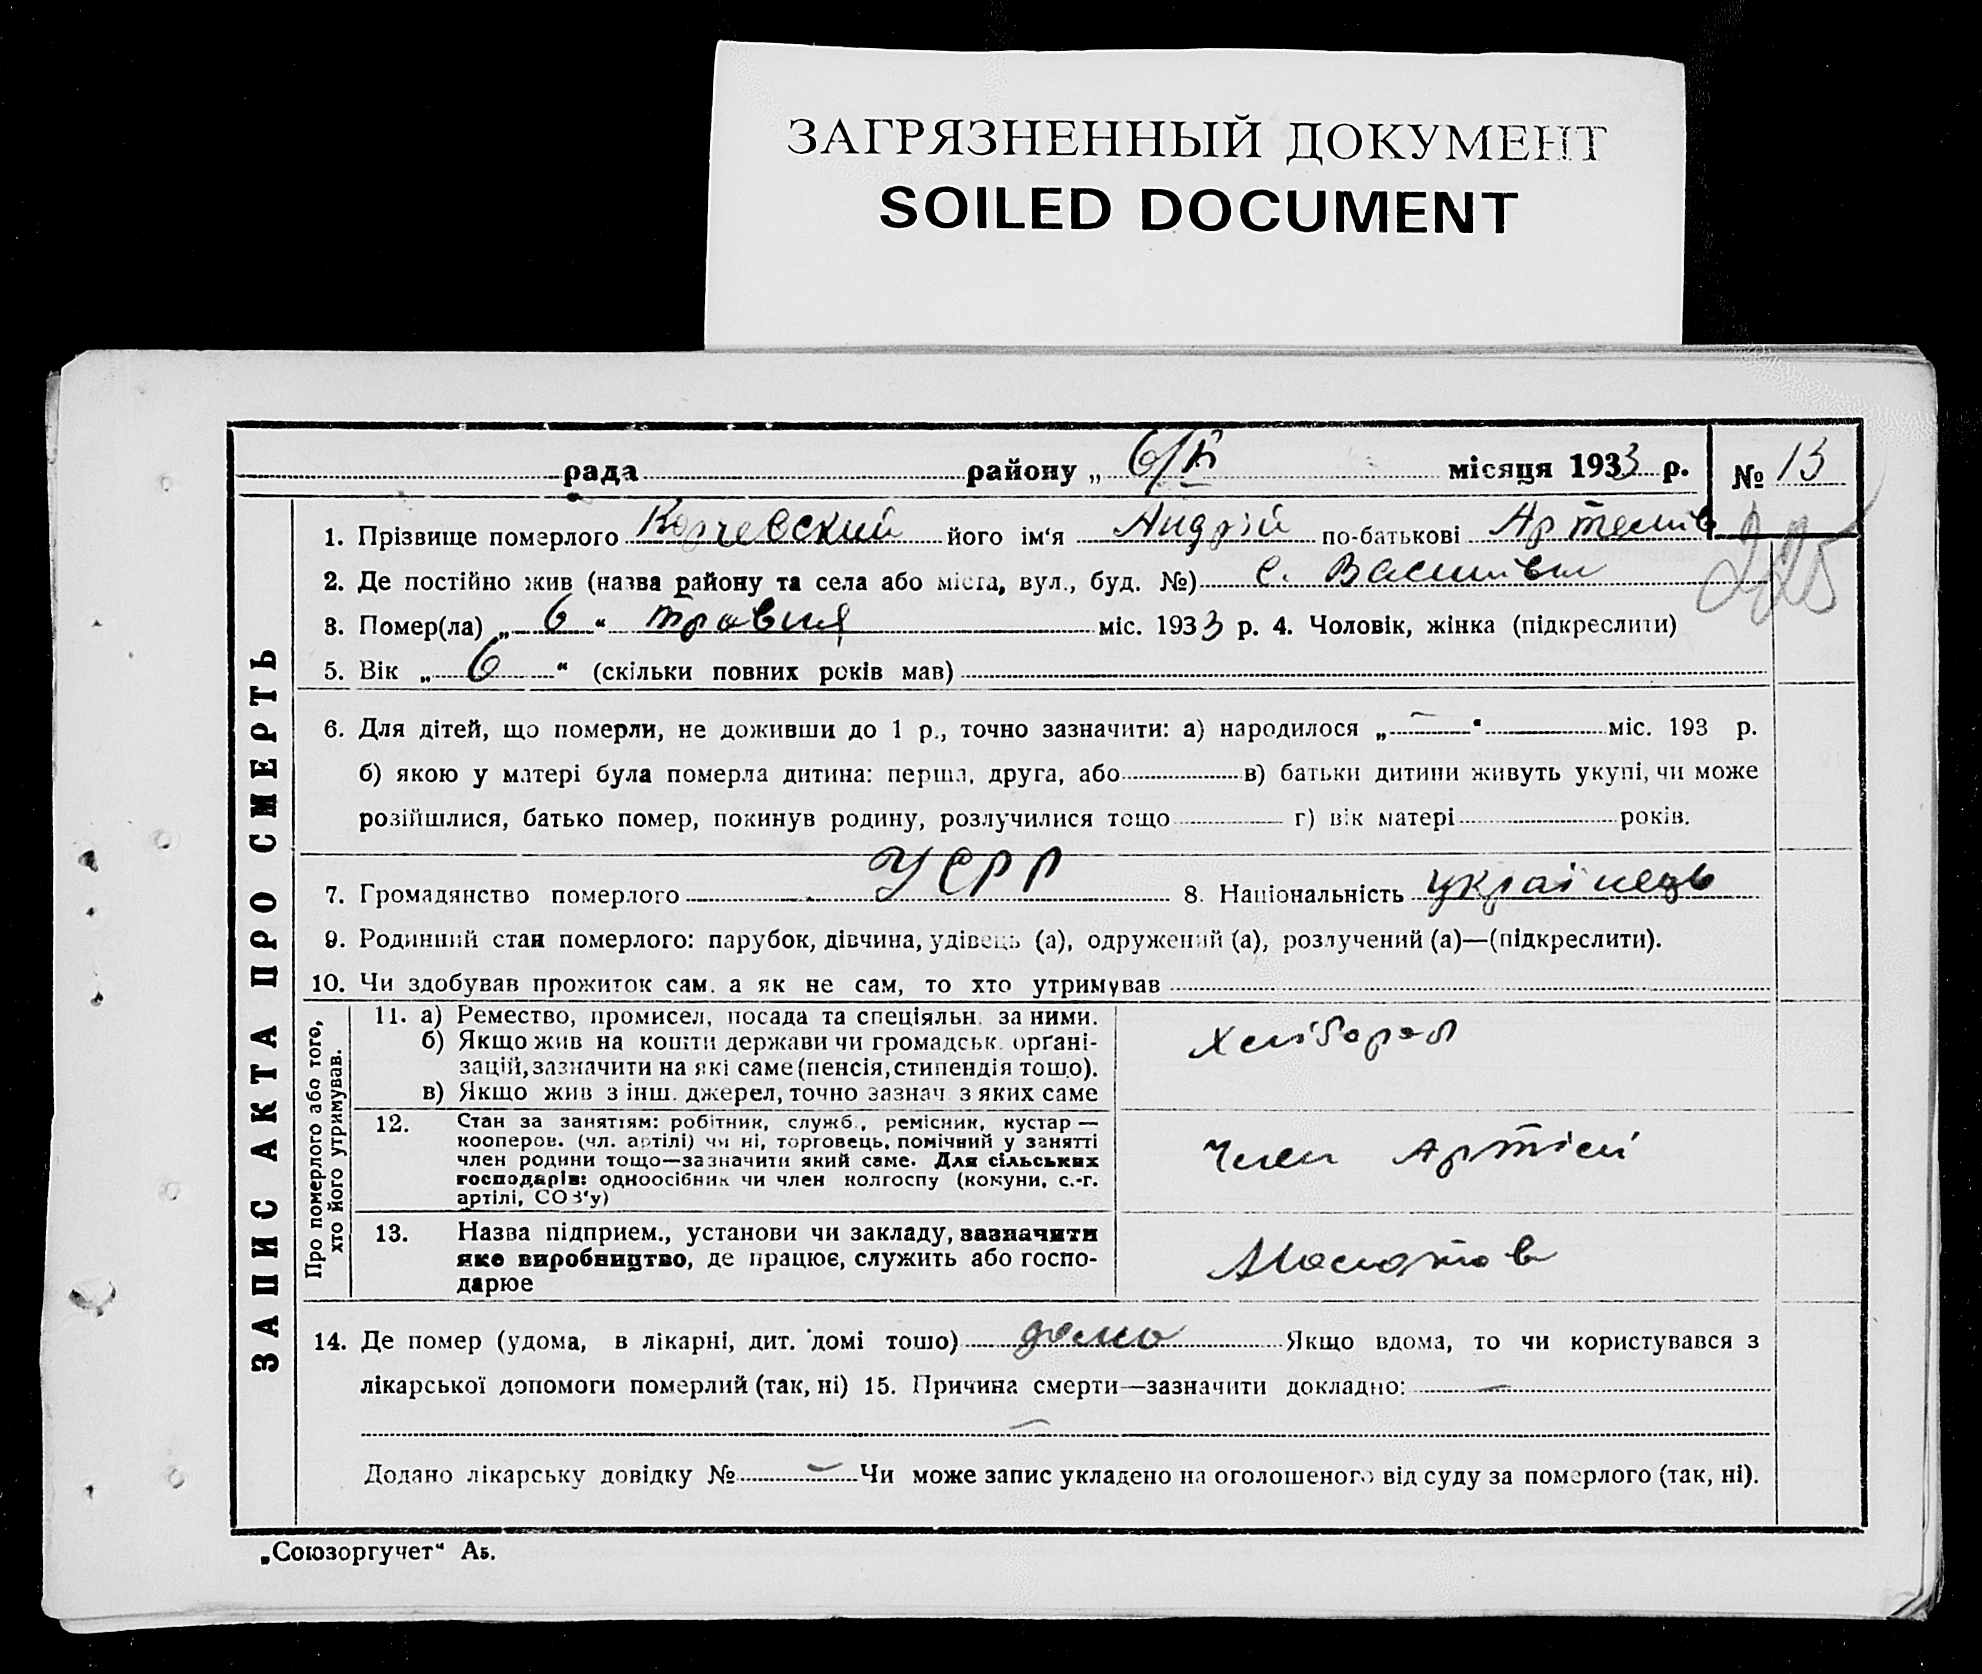 ЗАГРЯЗНЕННЫЙ ДОКУМЕНТ
SOILED DOCUMENT
рада району „ 6/V місяця 1933 р. № 13
225
ЗАПИС АКТА ПРО СМЕРТЬ
1. Прізвище померлого його ім‘я Андрій по-батькові Артемів
2. Де постійно жив (назва району та села або міста, вул., буд. №) с.
3. Помер(ла) „ 6 “ травня міс. 1933 р. 4. Чоловік, жінка (підкреслити)
5. Вік „ 6 “ (скільки повних років мав)
6. Для дітей, що померли, не доживши до 1 р., точно зазначити: а) народилося „ — “ міс. 193 р.
б) якою у матері була померла дитина: перша, друга, або в) батьки дитини живуть укупі, чи може
розійшлися, батько помер, покинув родину, розлучилися тощо г) вік матері років.
7. Громадянство померлого УСРР 8. Національність українець
9. Родинний стан померлого: парубок, дівчина, удівець (а), одружений (а), розлучений (а)—(підкреслити).
10. Чи здобував прожиток сам, а як не сам, то хто утримував
Про померлого або того,
хто його утримував.
11. а) Ремество, промисел, посада та спеціяльн. за ними.
б) Якщо жив на кошти держави чи громадськ. орґані-
зацій, зазначити на які саме (пенсія, стипендія тощо).
в) Якщо жив з інш. джерел, точно зазнач. з яких саме
хлібороб
12. Стан за заняттям: робітник, служб., ремісник, кустар —
кооперов. (чл. артілі) чи ні, торговець, помічний у занятті
член родини тощо—зазначити який саме. Для сільських
господарів: одноосібник чи член колгоспу (комуни, с.-г.
артілі, СОЗ‘у)
Член Артілі
13. Назва підприєм., установи чи закладу, зазначити
яке виробництво, де працює, служить або госпо-
дарює
14. Де помер (удома, в лікарні, дит. домі тошо) дома Якщо вдома, то чи користувався з
лікарської допомоги померлий (так, ні) 15. Причина смерти—зазначити докладно: —
—
Додано лікарську довідку № — Чи може запис укладено на оголошеного від суду за померлого (так, ні).
„Союзоргучет“ Аб.